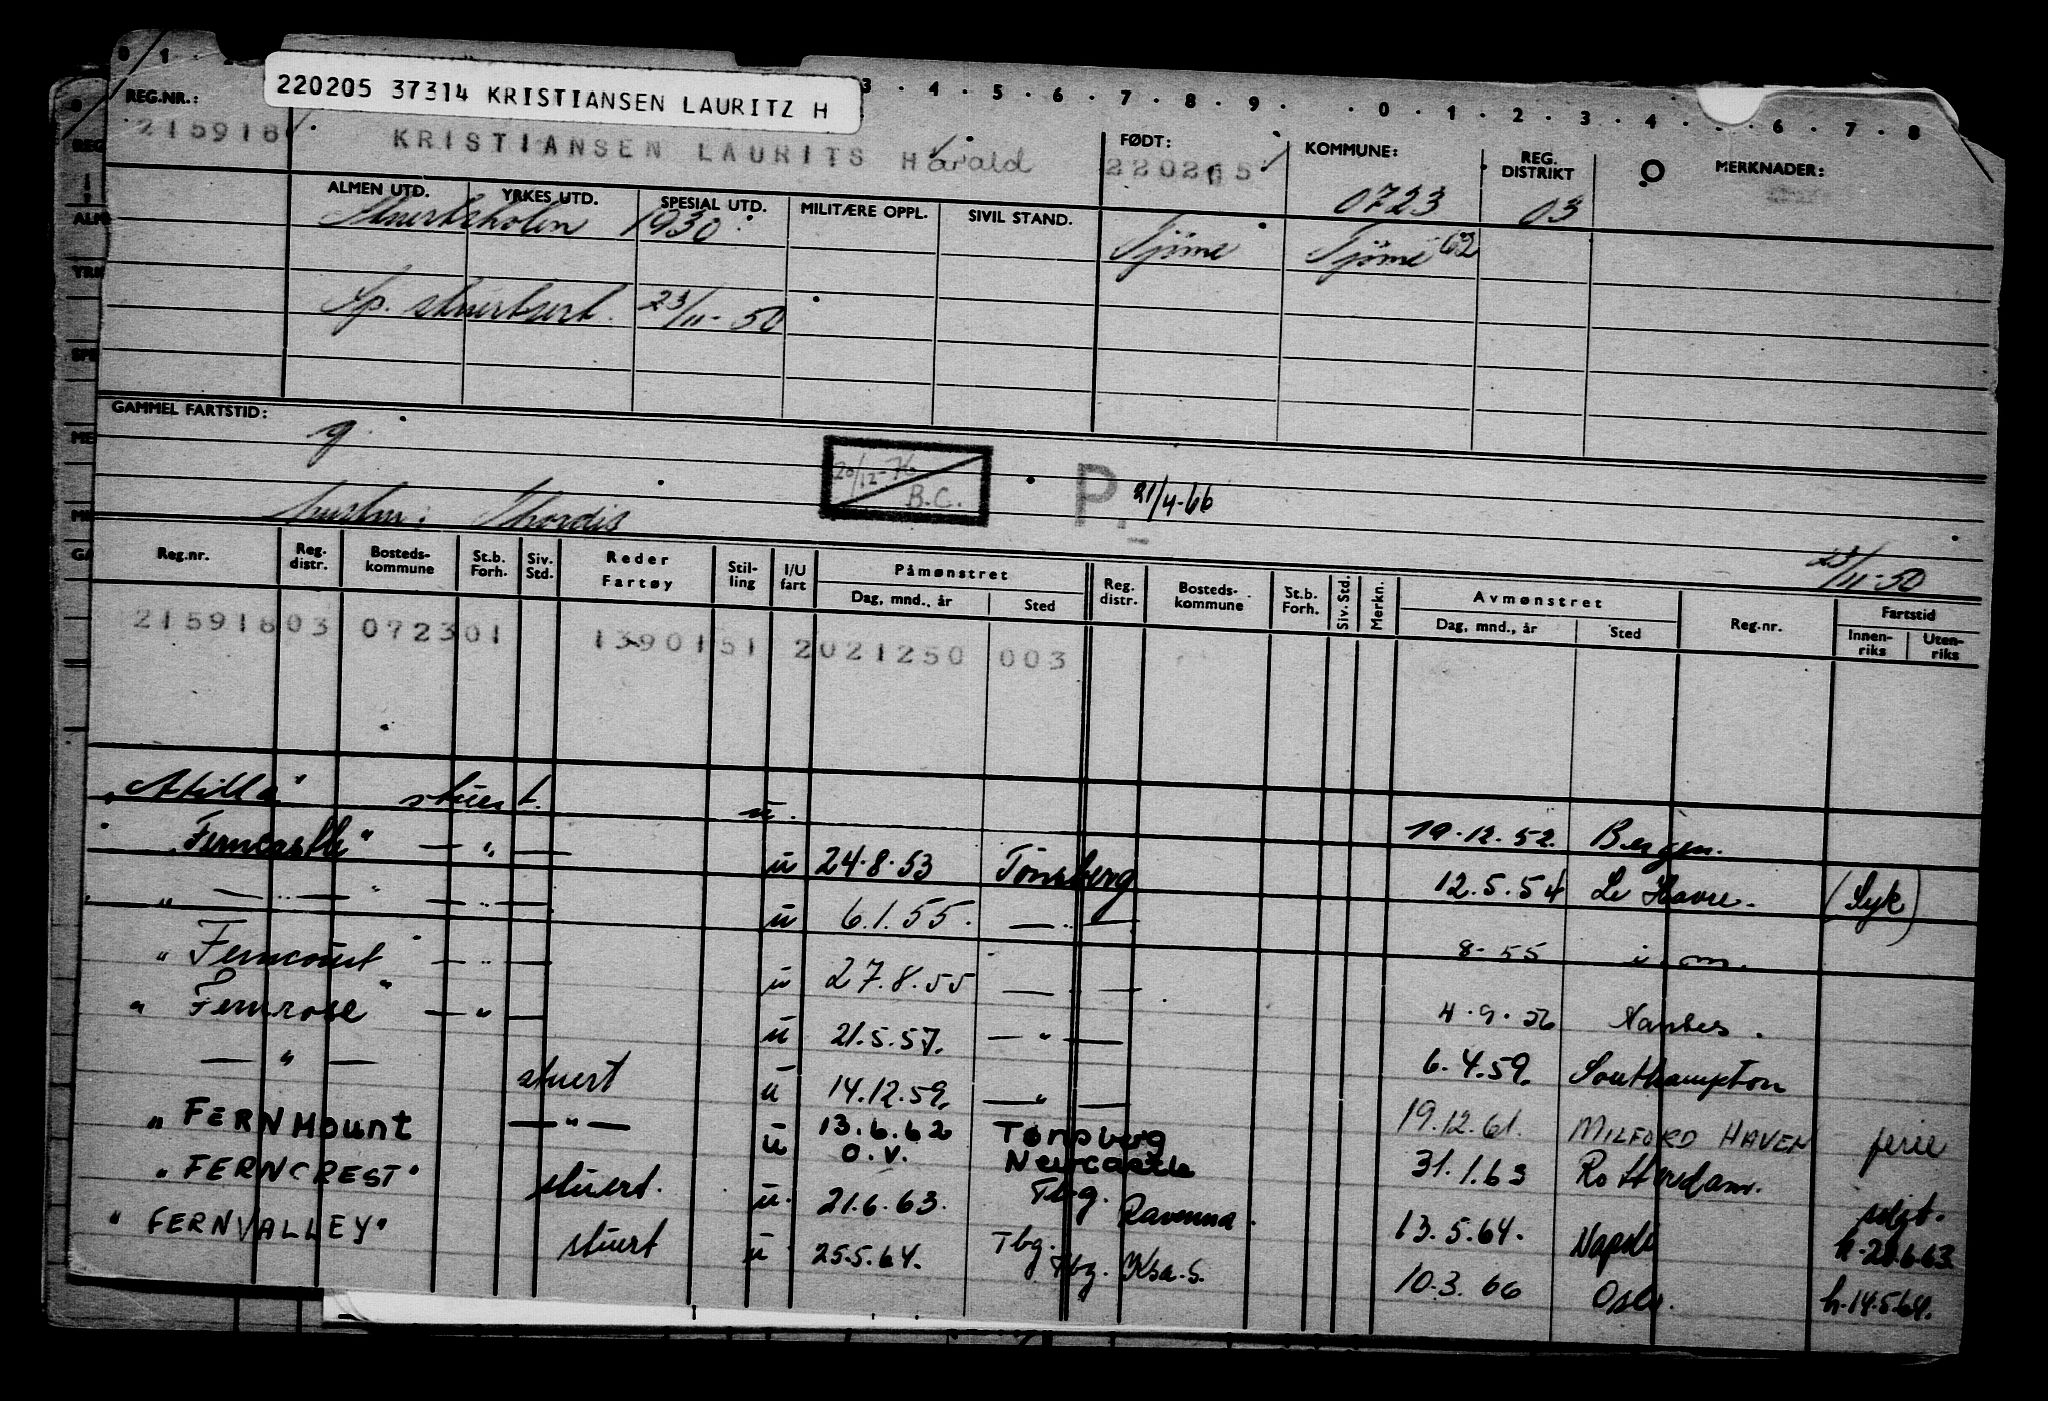 220205 37314 KRISTIANSEN LAURITZ H
REG.NR.: 215918 KRISTIANSEN LAURITS Harald FØDT: 220205 KOMMUNE: 0723 REG. DISTRIKT 03 MERKNADER:
ALMEN UTD. YRKES UTD. SPESIAL UTD. MILITÆRE OPPL. SIVIL STAND.
Stuertskolen 1930. Tjöme Tjöme 62
Sp. stuertsert. 23/11-50
GAMMEL FARTSTID:
g
20/12-76 B.C. P. 21/4-66
hustru: Thordis
23/11-50
Reg.nr. Reg. distr. Bosteds-kommune St.b. Forh. Siv. Std. Reder Fartøy Stil-ling I/U fart Påmønstret Dag, mnd., år Sted Reg. distr. Bosteds-kommune St.b. Forh. Siv. Std. Merkn. Avmønstret Dag, mnd., år Sted Reg.nr. Fartstid Innen-riks Uten-riks
215918 03 0723 01 1390151 2021250 003
"Atilla" stuert. u. 19.12.52. Bergen.
"Ferncastle" — " — u 24.8.53 Tönsberg 12.5.54 Le Havre. (Syk)
" — " — " — " — u 6.1.55. — " — 8-55 i. m.
"Ferncourt" — " — u 27.8.55 — " — 4.9.56 Nantes.
"Fernrose" — " — u 21.5.57. — " — 6.4.59. Southampton
— " — stuert u 14.12.59. — " — 19.12.61. MILFORD HAVEN ferie
"FERNMOUNT — " — u 13.6.62 O.V. Tønsberg Newcastle 31.1.63 Rotterdam. solgt.
"FERNCREST" stuert. u. 21.6.63. Tbg. Ravenna. 13.5.64. Napoli h.20.6.63.
"FERNVALLEY" stuert u 25.5.64. Tbg. Tbg. Kra.S. 10.3.66 Oslo. h.14.5.64.